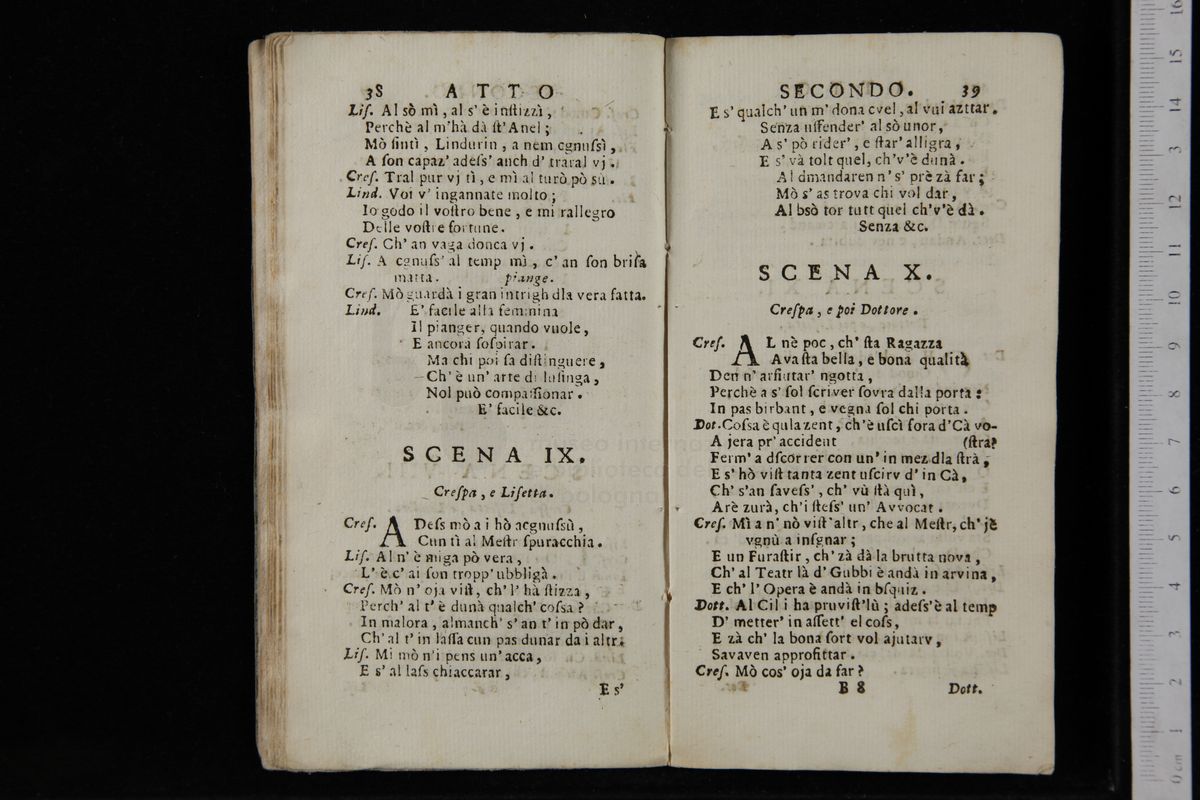 38 ATTO
Liſ. Al sò mì, al s' è inſtizzì,
Perchè al m'hà dà ſt' Anel;
Mò ſintì, Lindurin, a nem cgnuſsì,
A ſon capaz' adeſs' anch d' traral vj.
Creſ. Tral pur vj tì, e mì al turò pò su.
Lind. Voi v' ingannate molto;
Io godo il voſtro bene, e mi rallegro
Delle voſtre fortune.
Creſ. Ch' an vaga donca vj.
Liſ. A cgnuſs' al temp mì, c' an ſon briſa
matta. piange.
Creſ. Mò guardà i gran intrigh dla vera fatta.
Lind. E' facile alla femmina
Il pianger, quando vuole,
E ancora ſoſpirar.
Ma chi poi ſa diſtinguere,
Ch' è un' arte di luſinga,
Nol può compaſſionar.
E' facile &c.
SCENA IX.
Creſpa, e Liſetta.
Creſ. ADeſs mò a i hò acgnuſsù,
Cun tì al Meſtr ſpuracchia.
Liſ. Al n' è miga pò vera,
L' è c' ai ſon tropp' ubbligà.
Creſ. Mò n' oja viſt, ch' l' hà ſtizza,
Perch' al t' è dunà qualch' coſsa?
In malora, almanch' s' an t' in pò dar,
Ch' al t' in laſſa cun pas dunar da i altr.
Liſ. Mi mò n'i pens un' acca,
E s' al laſs chiaccarar,
E s'
SECONDO. 39
E s' qualch' un m' dona cvel, al vuì azttar.
Senza uffender' al sò unor,
A s' pò rider', e ſtar' alligra,
E s' và tolt quel, ch'v'è dunà.
Al dmandaren n' s' prè zà far;
Mò s' as trova chi vol dar,
Al bsò tor tutt quel ch'v'è dà.
Senza &c.
SCENA X.
Creſpa, e poi Dottore.
Creſ. AL nè poc, ch' ſta Ragazza
Ava ſta bella, e bona qualità
Den n' arfiutar' ngotta,
Perchè a s' ſol ſcriver ſovra dalla porta:
In pas birbant, e vegna ſol chi porta.
Dot. Coſsa è qula zent, ch'è uſcì fora d'Cà vo-
A jera pr' accident (ſtra?
Ferm' a dſcorrer con un' in mez dla ſtrà,
E s' hò viſt tanta zent uſcirv d' in Cà,
Ch' s'an ſaveſs', ch' vù ſtà quì,
Arè zurà, ch'i ſteſs' un' Avvocat.
Creſ. Mì a n' nò viſt'altr, che al Meſtr, ch' jè
vgnù a inſgnar;
E un Furaſtir, ch' zà dà la brutta nova,
Ch' al Teatr là d' Gubbi è andà in arvina,
E ch' l' Opera è andà in bſquiz.
Dott. Al Cil i ha pruviſt'lù; adeſs'è al temp
D' metter' in aſſett' el coſs,
E zà ch' la bona ſort vol ajutarv,
Savaven approfittar.
Creſ. Mò cos' oja da far?
B 8 Dott.